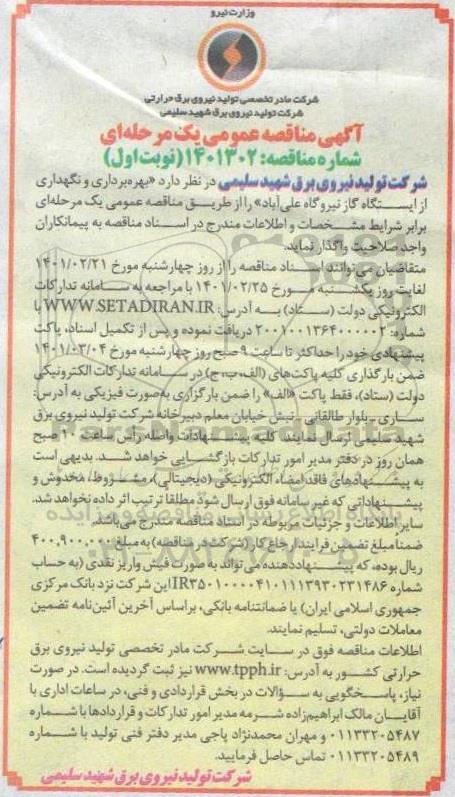 وزارت نیرو
شرکت مادر تخصصی تولید نیروی برق حرارتی
شرکت تولید نیروی برق شهید سلیمی
آگهی مناقصه عمومی یک مرحله‌ای
شماره مناقصه: ۱۴۰۱۳۰۲ (نوبت اول)
شرکت تولید نیروی برق شهید سلیمی در نظر دارد «بهره‌برداری و نگهداری
از ایستگاه گاز نیروگاه علی‌آباد» را از طریق مناقصه عمومی یک مرحله‌ای
برابر شرایط مشخصات و اطلاعات مندرج در اسناد مناقصه به پیمانکاران
واجد صلاحیت واگذار نماید.
متقاضیان می‌توانند اسناد مناقصه را از روز چهارشنبه مورخ ۱۴۰۱/۰۲/۲۱
لغایت روز یکشنبه مورخ ۱۴۰۱/۰۲/۲۵ با مراجعه به سامانه تدارکات
الکترونیکی دولت (ستاد) به آدرس: WWW.SETADIRAN.IR با
شماره: ۲۰۰۱۰۰۱۳۶۴۰۰۰۰۰۲ دریافت نموده و پس از تکمیل اسناد، پاکت
پیشنهادی خود را حداکثر تا ساعت ۹ صبح روز چهارشنبه مورخ ۱۴۰۱/۰۳/۰۴
ضمن بارگذاری کلیه پاکت‌های (الف، ب، ج) در سامانه تدارکات الکترونیکی
دولت (ستاد)، فقط پاکت «الف» را ضمن بارگزاری به‌صورت فیزیکی به آدرس:
ساری ـ بلوار طالقانی ـ نبش خیابان معلم دبیرخانه شرکت تولید نیروی برق
شهید سلیمی ارسال نمایند. کلیه پیشنهادات واصله راس ساعت ۱۰ صبح
همان روز در دفتر مدیر امور تدارکات بازگشایی خواهد شد. بدیهی است
به پیشنهادهای فاقد امضاء الکترونیکی (دیجیتالی)، مشروط، مخدوش و
پیشنهاداتی که غیر سامانه فوق ارسال شود مطلقا ترتیب اثر داده نخواهد شد.
سایر اطلاعات و جزئیات مربوطه در اسناد مناقصه مندرج می‌باشد.
ضمناً مبلغ تضمین فرایند ارجاع کار (شرکت در مناقصه) به مبلغ ۴۰۰,۹۰۰,۰۰۰
ریال بوده، که پیشنهاددهنده می‌تواند به صورت فیش واریز نقدی (به حساب
شماره IR۳۵۰۱۰۰۰۰۴۱۰۱۱۱۳۹۳۰۲۳۱۴۸۶ این شرکت نزد بانک مرکزی
جمهوری اسلامی ایران) یا ضمانتنامه بانکی، براساس آخرین آئین‌نامه تضمین
معاملات دولتی، تسلیم نمایند.
اطلاعات مناقصه فوق در سایت شرکت مادر تخصصی تولید نیروی برق
حرارتی کشور به آدرس: www.tpph.ir نیز ثبت گردیده است. در صورت
نیاز، پاسخگویی به سؤالات در بخش قراردادی و فنی، در ساعات اداری با
آقایان مالک ابراهیم‌زاده شرمه مدیر امور تدارکات و قراردادها با شماره
۰۱۱۳۳۲۰۵۴۸۷ و مهران محمدنژاد پاجی مدیر دفتر فنی تولید با شماره
۰۱۱۳۳۲۰۵۴۸۹ تماس حاصل فرمایید.
شرکت تولید نیروی برق شهید سلیمی